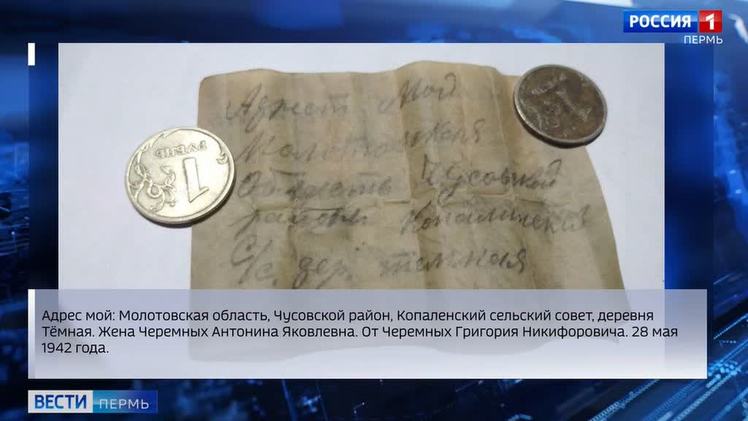 РОССИЯ 1
ПЕРМЬ
1
РУБЛЬ
Адрест Мой
Молотовская
Область Чусовской
район Копалинския
С/с. дер. темная
Адрес мой: Молотовская область, Чусовской район, Копаленский сельский совет, деревня
Тёмная. Жена Черемных Антонина Яковлевна. От Черемных Григория Никифоровича. 28 мая
1942 года.
ВЕСТИ ПЕРМЬ